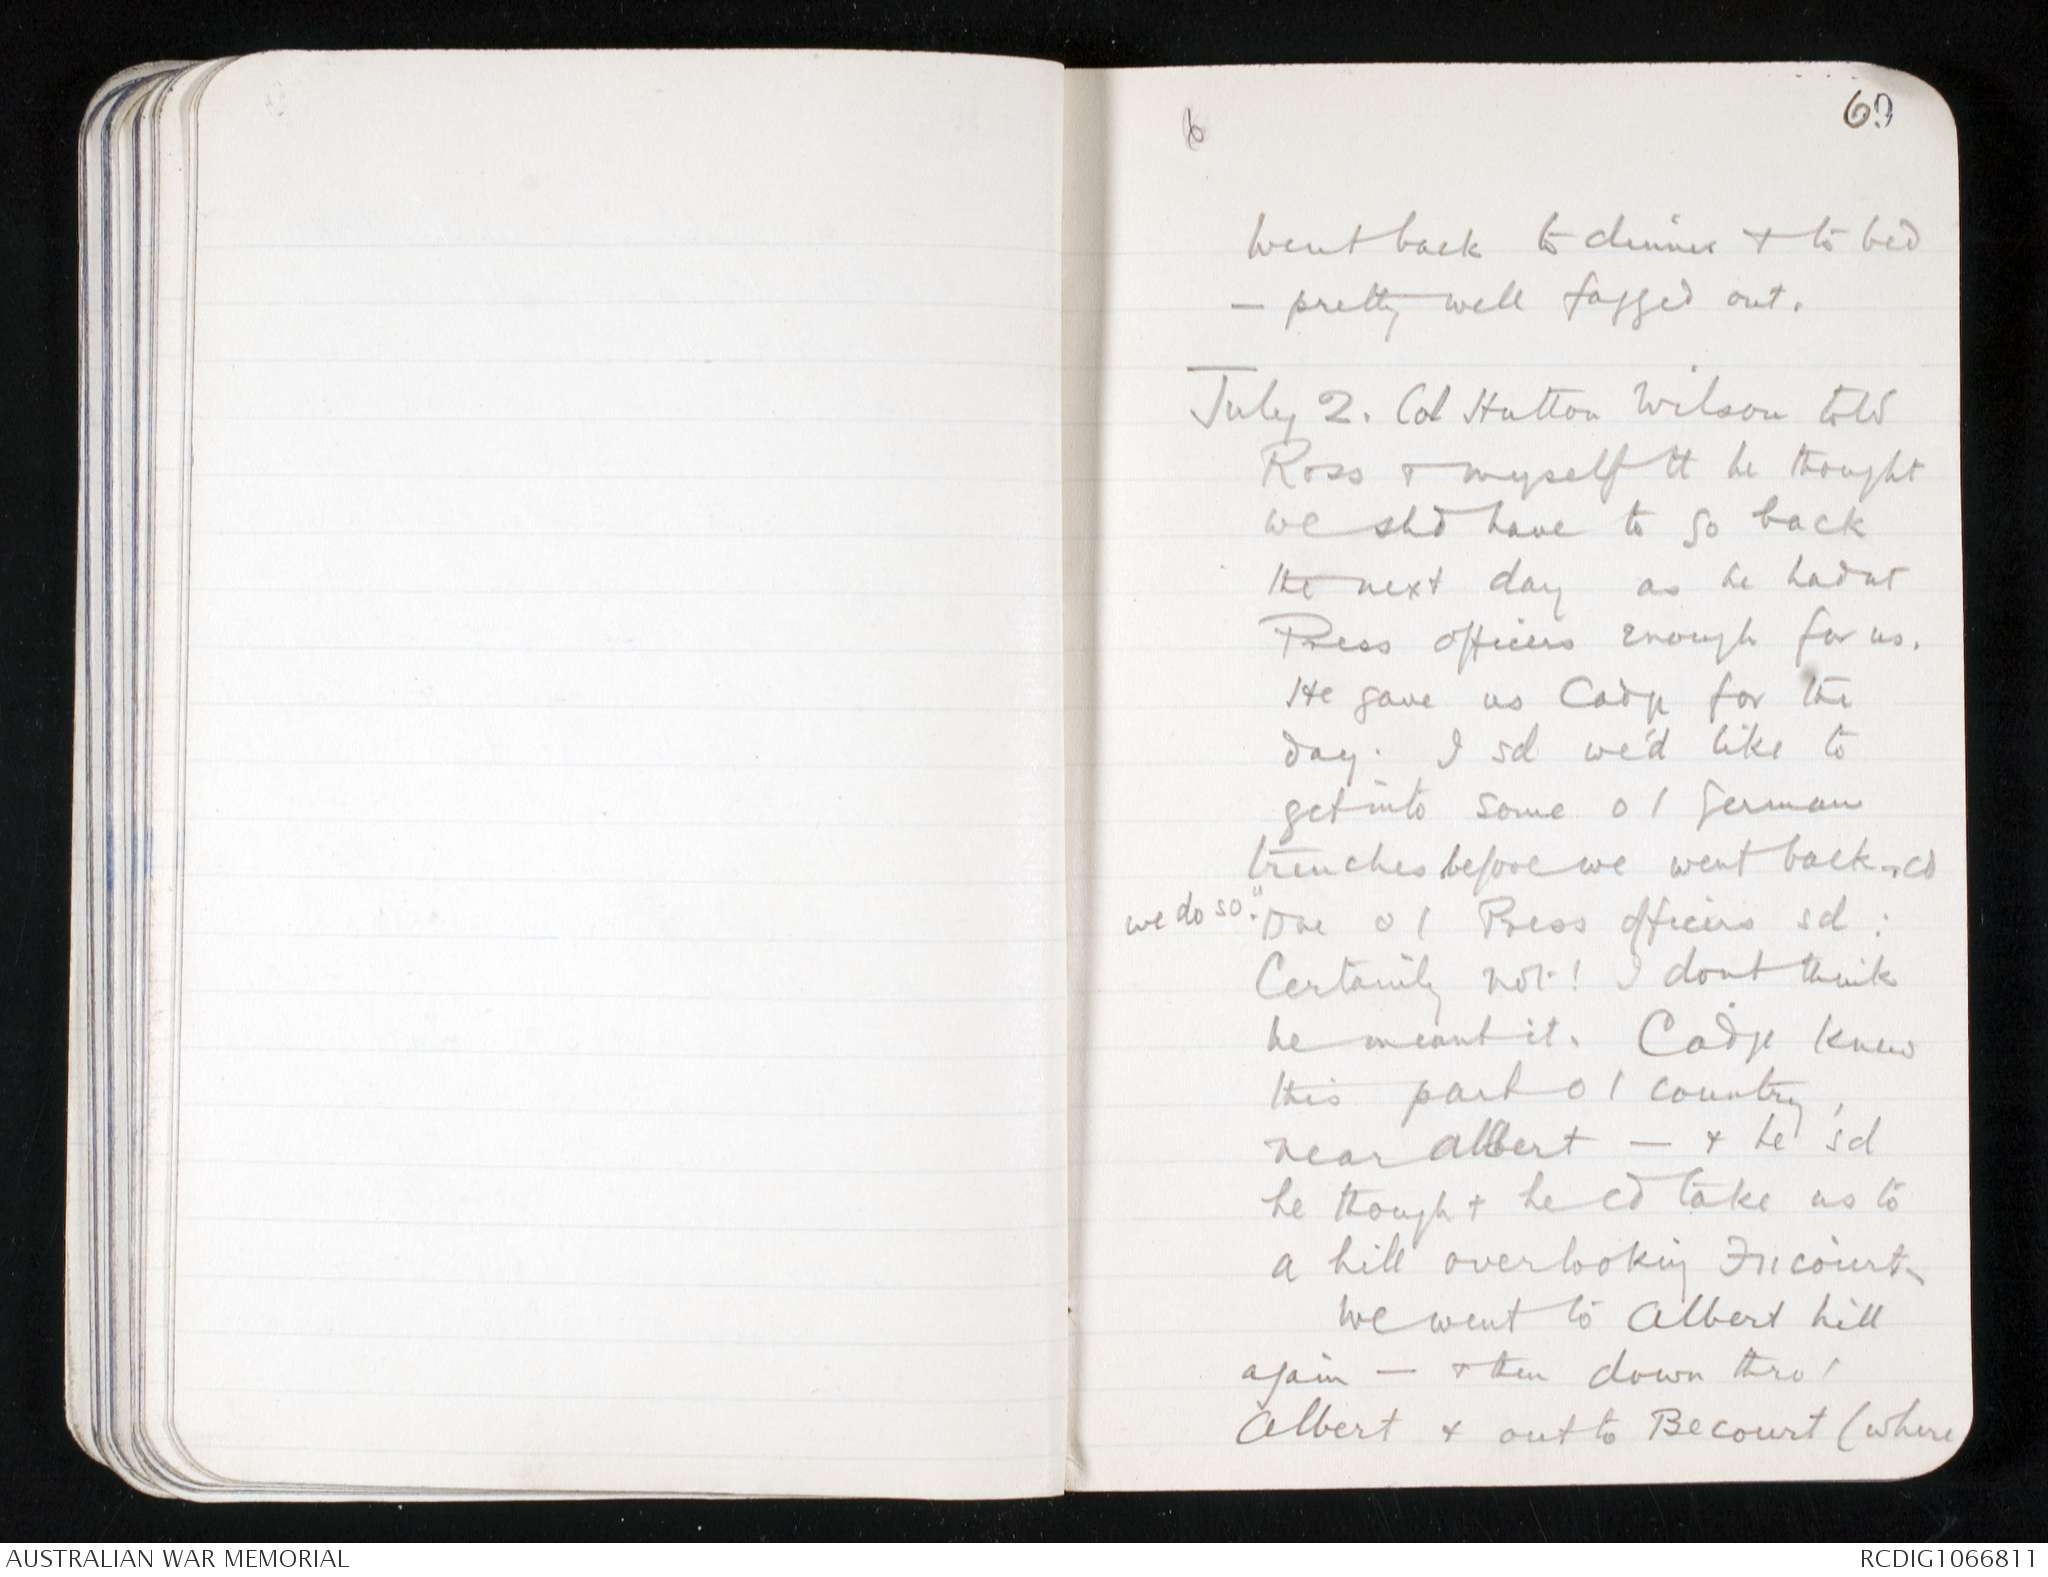 6
went back to dinner & to bed
— pretty well fagged out.
July 2. Col Hutton Wilson told
Ross & myself tt he thought
we shd have to go back
the next day as he hadnt
Press officers enough for us.
He gave us Cadge for the
day. I sd we'd like to
get into some o / German
trenches before we went back - cd
we do so."
One o / Press officers sd :
Certainly not! I dont think
he meant it. Cadge knew
this part o / country,
near Albert — & he sd
he thought he cd take us to
a hill overlooking Fricourt.
We went to Albert hill
again — & then down thro'
Albert & out to Becourt (where
AUSTRALIAN WAR MEMORIAL
RCDIG1066811